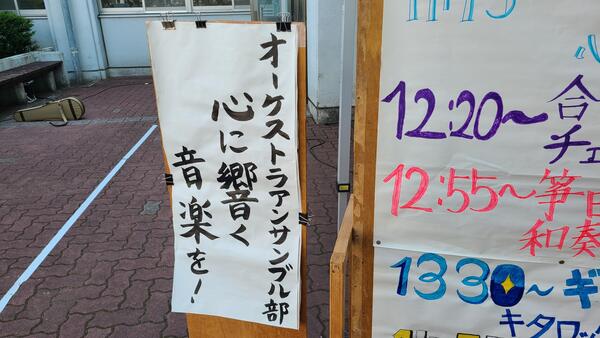 オーケストラアンサンブル部
心に響く
音楽を！
12:20～合
チェ
12:55～箏
和奏
1330～ギ
キタロッ